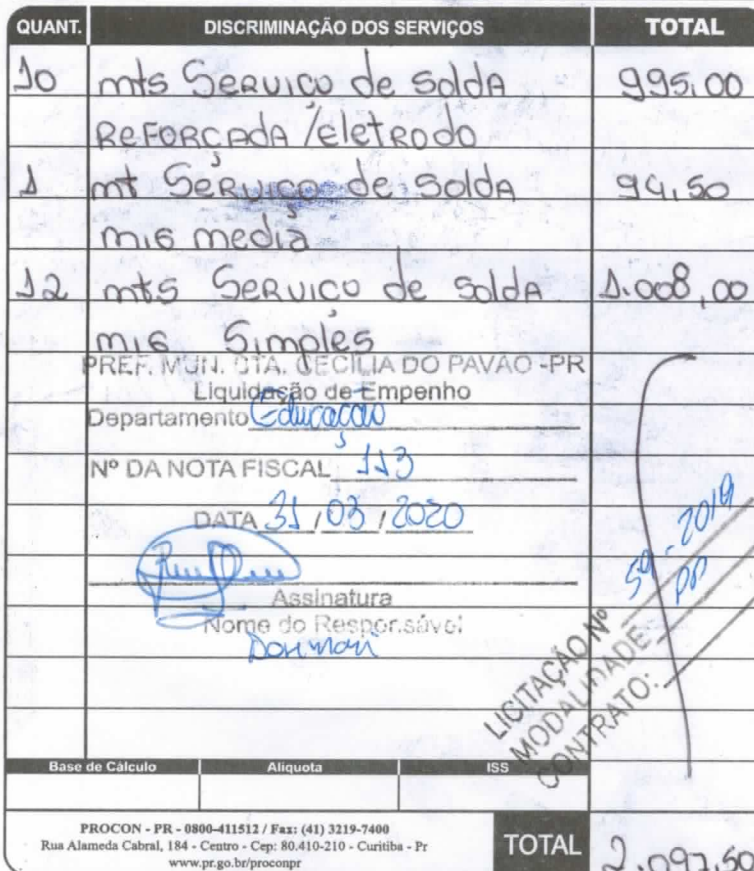 QUANT. DISCRIMINAÇÃO DOS SERVIÇOS TOTAL
10 mts Serviço de solda 995,00
Reforçada /eletrodo
1 mt Serviço de solda 94,50
mig media
12 mts Serviço de solda 1.008,00
mig Simples
PREF. MUN. STA. CECÍLIA DO PAVÃO -PR
Liquidação de Empenho
Departamento Educação
Nº DA NOTA FISCAL 113
DATA 31 / 03 / 2020
Assinatura
Nome do Responsável
LICITAÇÃO Nº 59 - 2019
MODALIDADE: PP
CONTRATO:
Base de Cálculo Alíquota ISS
PROCON - PR - 0800-411512 / Fax: (41) 3219-7400
Rua Alameda Cabral, 184 - Centro - Cep: 80.410-210 - Curitiba - Pr
www.pr.go.br/proconpr
TOTAL 2.097,50